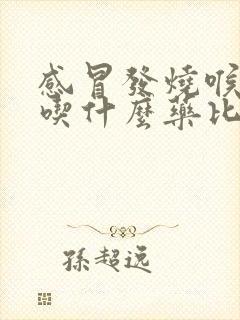 感冒發燒喉
喫什麼藥比
孫超远